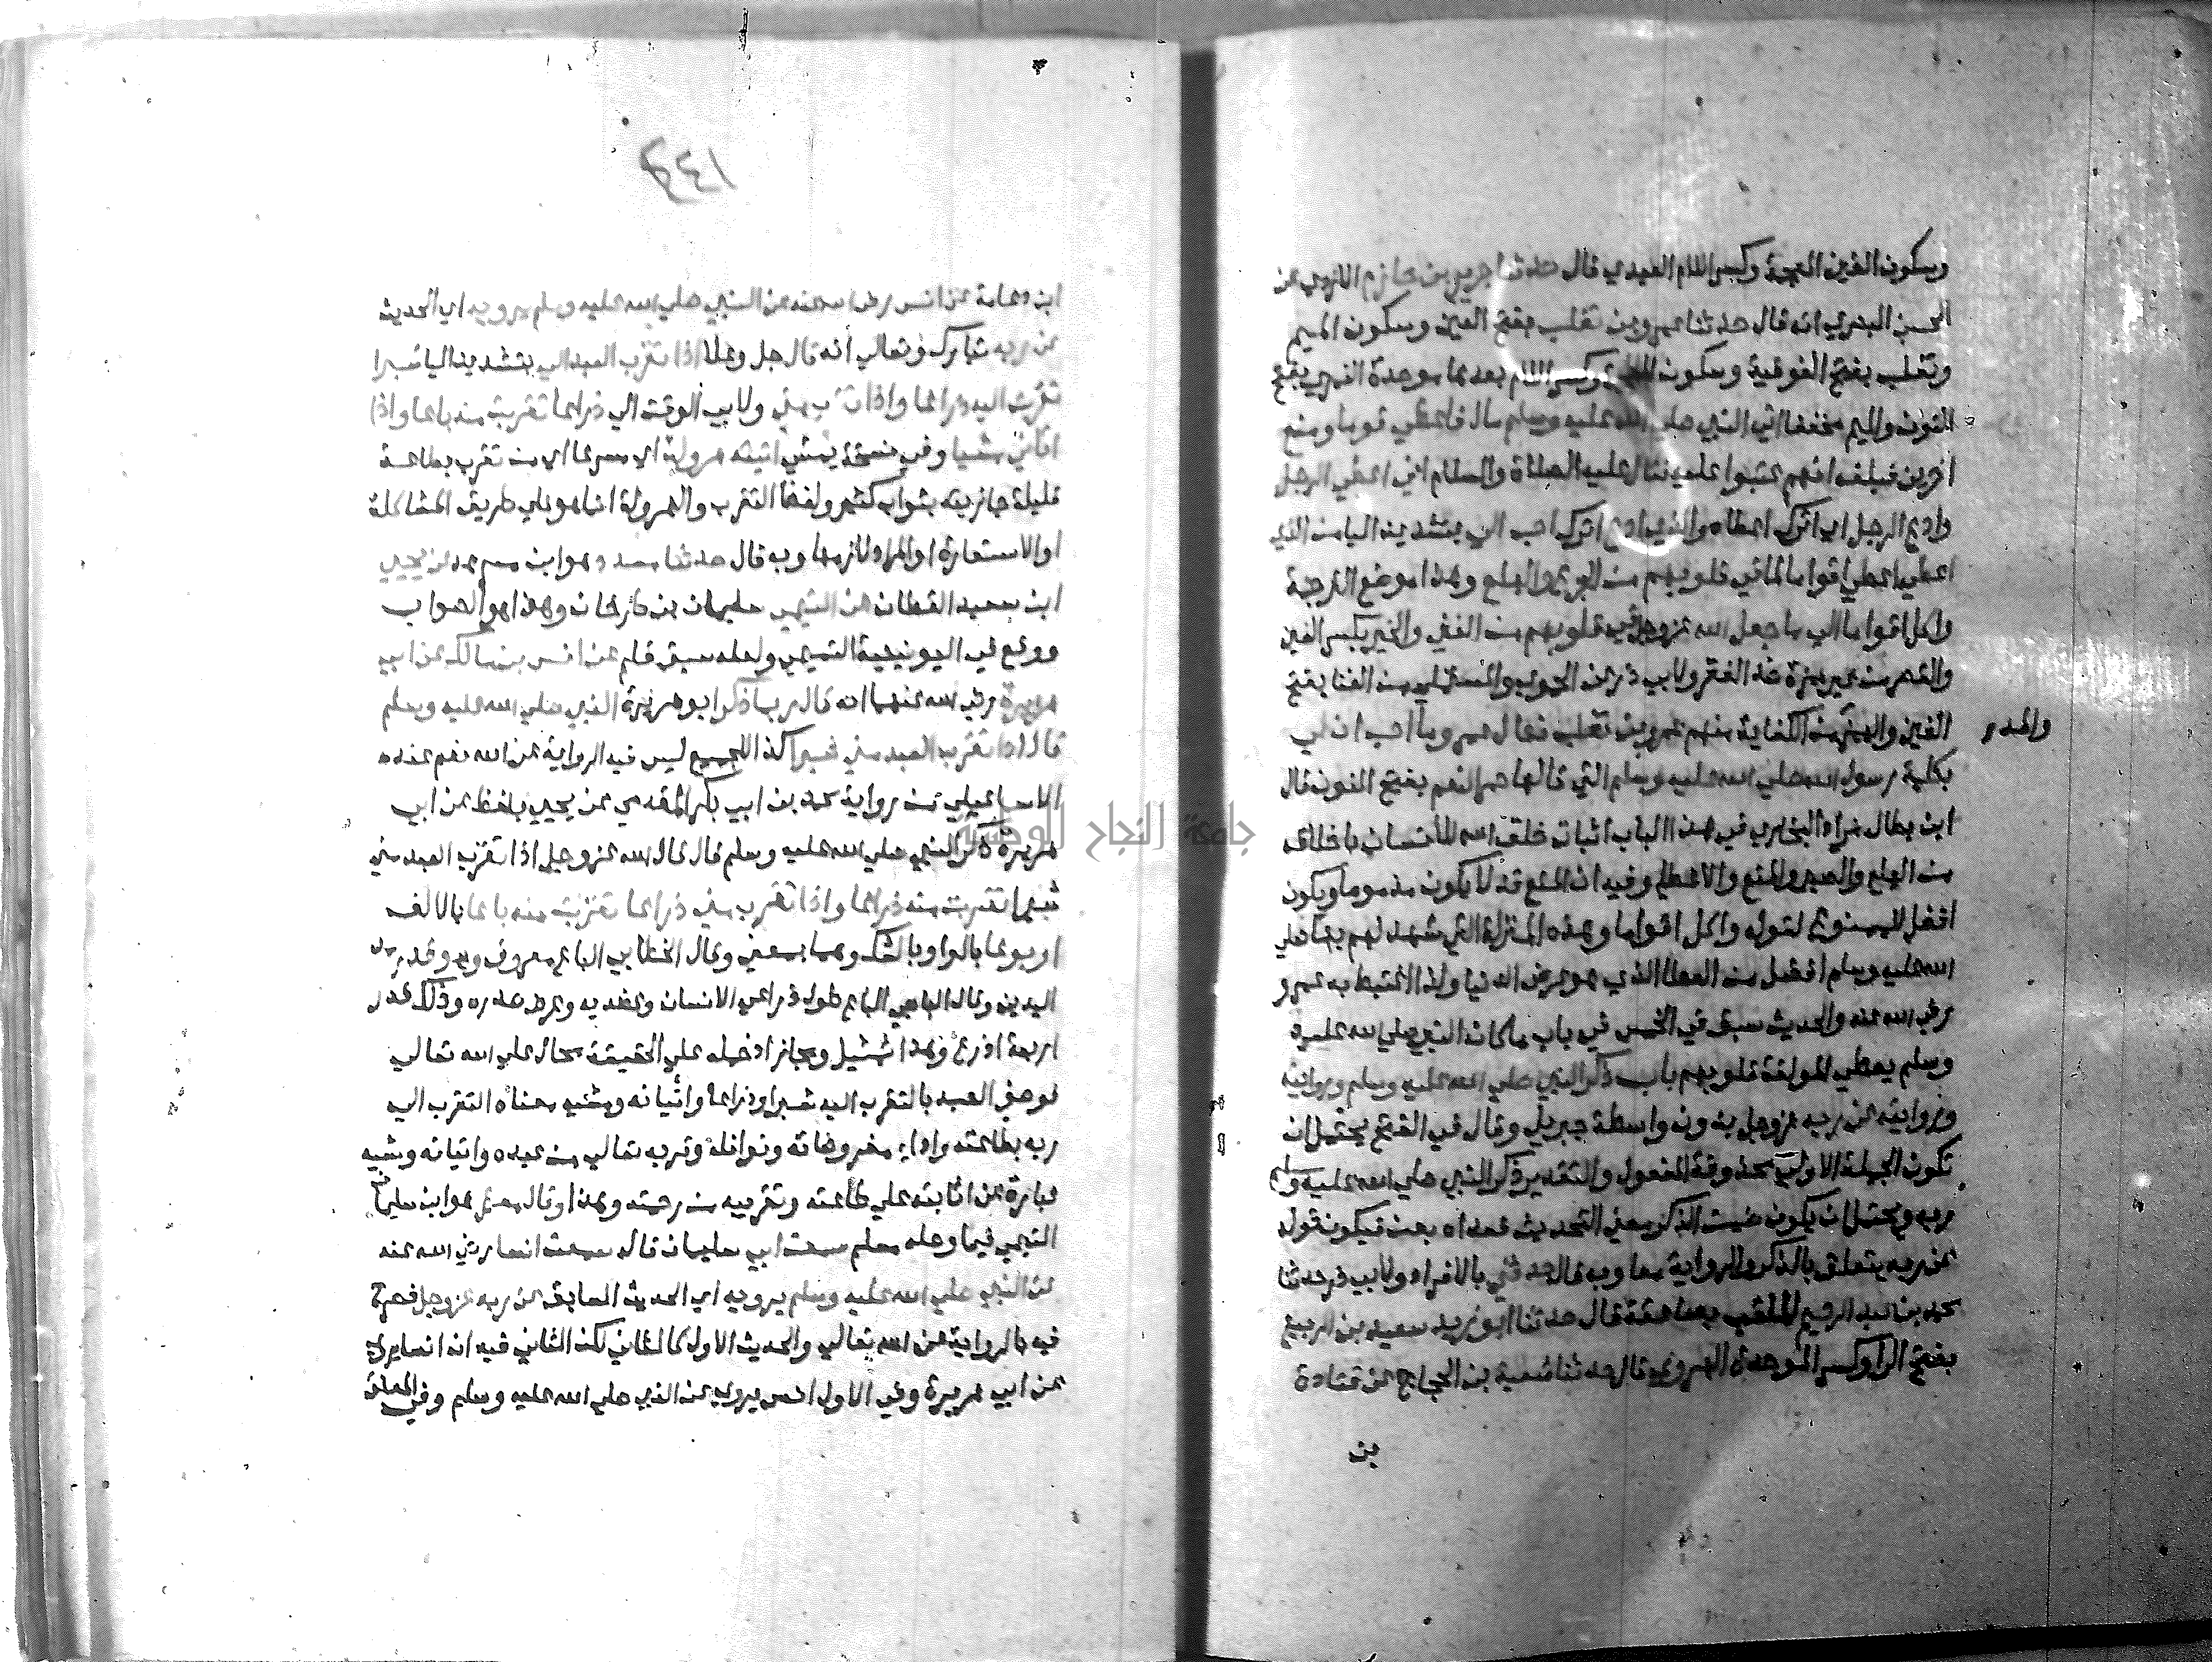 وسكون الغين المعجمة وكسر اللام العبدي قال حدثنا جرير بن حازم الازدي عن
الحسن البصري انه قال حدثنا عمرو بن تغلب بفتح العين وسكون الميم
وتغلب بفتح الفوقية وسكون المعجمة وكسر اللام بعدها موحدة النمري بفتح
النون والميم مخففا اتي النبي صلي الله عليه وسلم مال فاعطي قوما ومنع
اخرين فبلغه انهم عتبوا عليه فقال عليه الصلاة والسلام اني اعطي الرجل
وادع الرجل اي اترك اعطاه والذي ادع اترك احب الي بتشديد اليا من الذي
اعطي اعطي اقواما لما في قلوبهم من الجزع والهلع وهذا موضع الترجمة
واكل اقواما الي ما جعل الله عز وجل في قلوبهم من الغني والخير بكسر الغين
والقصر من غير همزة ضد الفقر ولابي ذر عن الحموي والمستملي من الغنا بفتح
الغين والهمز من الكفاية منهم عمرو بن تغلب فقال عمرو ما احب ان لي
والمد و
بكلمة رسول الله صلي الله عليه وسلم التي قالها حمر النعم بفتح النون قال
ابن بطال مراد البخاري في هذا الباب اثبات خلق الله للانسان باخلاقه
من الهلع والصبر والمنع والاعطا وفيه ان المنع قد لا يكون مذموما ويكون
افضل للممنوع لقوله واكل اقواما وهذه المنزلة التي شهد لهم بها صلي
الله عليه وسلم افضل من العطا الذي هو عرض الدنيا ولذا اغتبط به عمرو
رضي الله عنه والحديث سبق في الخمس في باب ما كان النبي صلي الله عليه
وسلم يعطي المولفة قلوبهم باب ذكر النبي صلي الله عليه وسلم وروايته
وروايته عن ربه عز وجل بدون واسطة جبريل وقال في الفتح يحتمل ان
تكون الجملة الاولي محذوفة المفعول والتقدير ذكر النبي صلي الله عليه وسلم
ربه ويحتمل ان يكون ضمن الذكر معني التحديث فعداه بعن فيكون قوله
عن ربه يتعلق بالذكر والرواية معا وبه قال حدثني بالافراد ولابي ذر حدثنا
محمد بن عبد الرحيم الملقب بصاعقة قال حدثنا ابو زيد سعيد بن الربيع
بفتح الرا وكسر الموحدة الهروي قال حدثنا شعبة بن الحجاج عن قتادة
بن
٢٤١
ابن دعامة عن انس رضي الله عنه عن النبي صلي الله عليه وسلم يرويه اي الحديث
عن ربه تبارك وتعالي أنه قال جل وعلا اذا تقرب العبد الي بتشديد اليا شبرا
تقربت اليه ذراعا واذا تقرب مني ولابي الوقت الي ذراعا تقربت منه باعا واذا
اتاني مشيا وفي نسخة يمشي اتيته هرولة اي مسرعا اي من تقرب بطاعة
قليلة جازيته بثواب كثير ولفظ التقرب والهرولة انما هو علي طريق المشاكلة
او الاستعارة او المراد لازمها وبه قال حدثنا مسدد هو ابن مسرهد عن يحيي
ابن سعيد القطان عن التيمي سليمان بن طرخان وهذا هو الصواب
ووقع في اليونينية التميمي ولعله سبق قلم عن انس بن مالك عن ابي
هريرة رضي الله عنهما انه قال ربما ذكر ابو هريرة النبي صلي الله عليه وسلم
قال اذا تقرب العبد مني شبرا كذا للجميع ليس فيه الرواية عن الله نعم عنده
الاسماعيلي من رواية محمد بن ابي بكر المقدمي عن يحيي بلفظ عن ابي
هريرة ذكر النبي صلي الله عليه وسلم قال قال الله عز وجل اذا تقرب العبد مني
شبرا تقربت منه ذراعا واذا تقرب مني ذراعا تقربت منه باعا بالالف
او بوعا بالواو بالشك وهما بمعني وقال الخطابي الباع معروف وهو قدر مد
اليدين وقال الباجي الباع طول ذراعي الانسان وعضديه وعرض صدره وذلك قدر
اربعة اذرع وهذا تمثيل ومجاز اذ حمله علي الحقيقة محال علي الله تعالي
فوصف العبد بالتقرب اليه شبرا وذراعا واتيانه ومشيه معناه التقرب الي
ربه بطاعته واداء مفروضاته ونوافله وتقربه تعالي من عبده واتيانه ومشيه
عبارة عن اثابته علي طاعته وتقريبه من رحمته وبهذا وقال معتمر هو ابن سليمان
التيمي فيما وصله مسلم سمعت ابي سليمان قال سمعت انسا رضي الله عنه
عن النبي صلي الله عليه وسلم يرويه اي الحديث السابق عن ربه عز وجل فصرح
فيه بالرواية عن الله تعالي والحديث الاول كالثاني لكن الثاني فيه ان انسا يروي
عن ابي هريرة وفي الاول انس يرويه عن النبي صلي الله عليه وسلم وفي المعلق
جامعة النجاح الوطنية